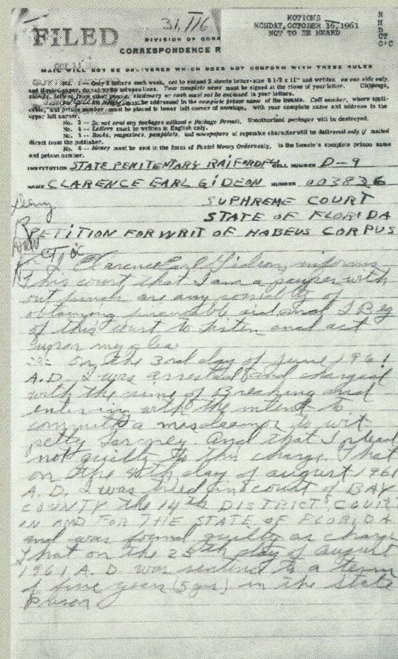 31,116
FILED
DIVISION OF CORR
CORRESPONDENCE R
MOTIONS
MONDAY, OCTOBER 16, 1961
NOT TO BE HEARD
MAIL WILL NOT BE DELIVERED WHICH DOES NOT CONFORM WITH THESE RULES
No. 1 -- Only 2 letters each week, not to exceed 2 sheets letter-size 8 1/2 x 11" and written on one side only,
Your complete name must be signed at the close of your letter. Clippings,
stamps, letters from other people, stationery or cash must not be enclosed in your letters.
must be addressed in the complete prison name of the inmate. Cell number, where applicable,
and prison number must be placed in lower left corner of envelope, with your complete name and address in the
upper left corner.
No. 3 -- Do not send any packages without a Package Permit. Unauthorized packages will be destroyed.
No. 4 -- Letters must be written in English only.
No. 5 -- Books, magazines, pamphlets, and newspapers of reputable character will be delivered only if mailed
direct from the publisher.
No. 6 -- Money must be sent in the form of Postal Money Orders only, in the inmate's complete prison name
and prison number.
INSTITUTION STATE PENITENTARY RAIFORD FLA CELL NUMBER D-9
NAME CLARENCE EARL GIDEON NUMBER 003836
SUPHREME COURT
STATE OF FLORIDA
PETITION FOR WRIT OF HABEUS CORPUS
I, Clarence Earl Gideon, informs
This court that I am a pauper with
out funds are any
obtaining
of this court to listen and act
upon my plea
On the 3rd day of June 1961
A.D. I was arrested and charged
with the crime of Breaking and
entering with the intent to
committ a misdeemor to wit
petty larceny. And that I plead
not guilty to this charge. That
on the 4th day of august 1961
A.D. I was tried in court of BAY
COUNTY the 14th DISTRICT COURT
IN AND FOR THE STATE OF FLORIDA
and was found guilty as charge
That on the 25th day of august
1961 A.D. was sentenced to a term
of five year (5 yrs) in the state
prison